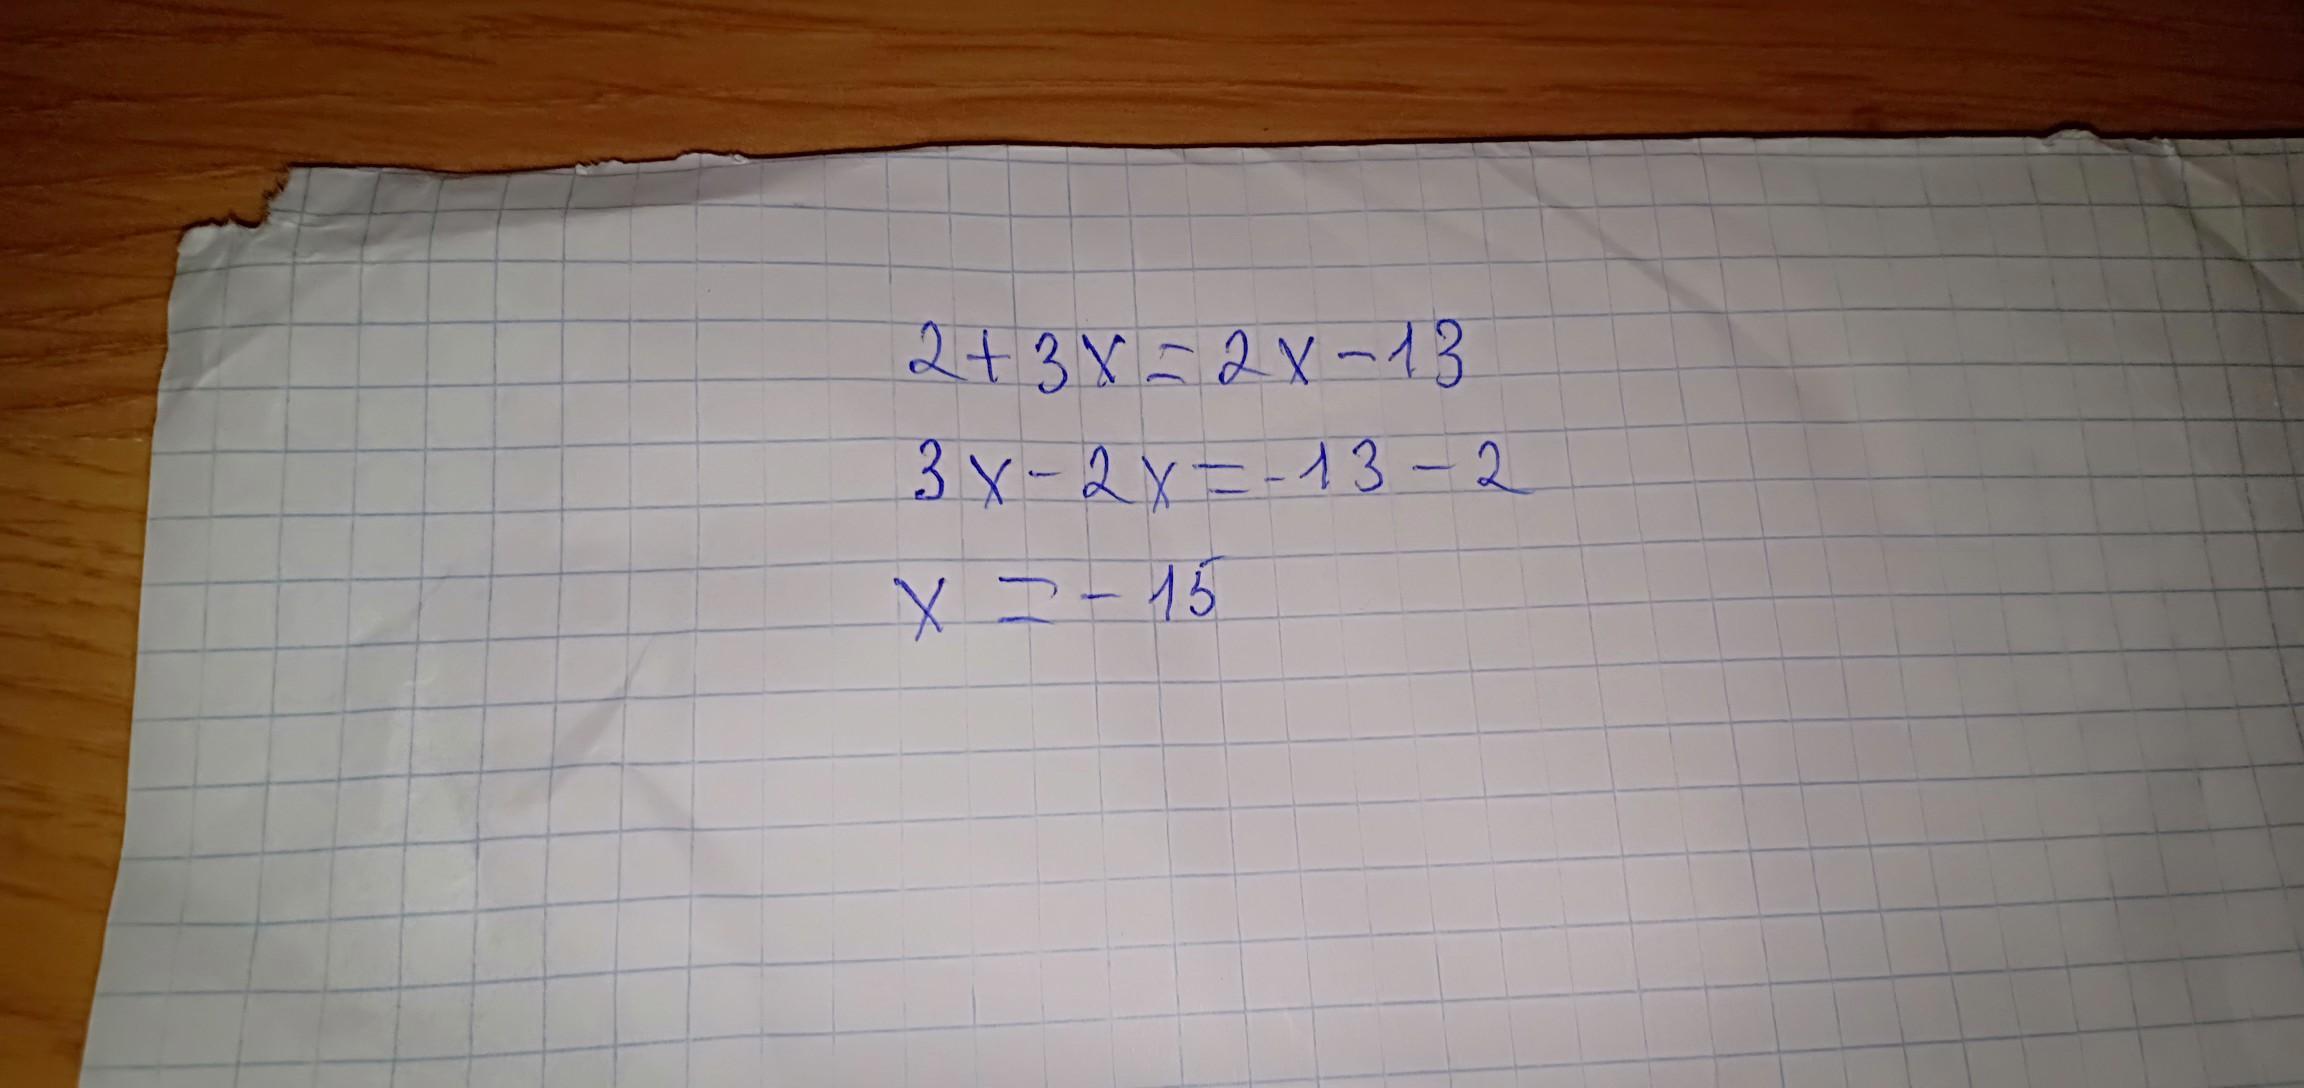 2+3x=2x-13
3x-2x=-13-2
x=-15